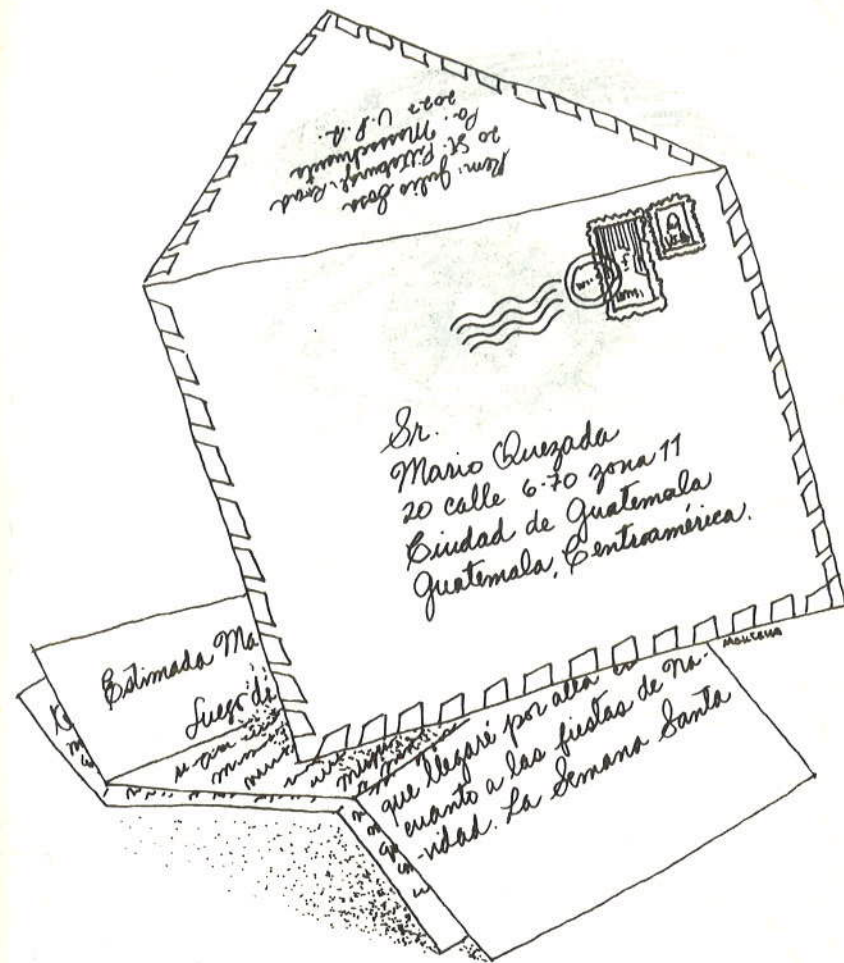 Rem: Julio Sosa
20 St. Pittsburgh. Road
Pa. Massachusetts
2022 U.S.A.
Sr.
Mario Quezada
20 calle 6-70 zona 11
Ciudad de Guatemala
Guatemala, Centroamérica.
Estimada Ma
Luego de
que llegaré por allá
cuanto a las fiestas de na-
-vidad. La Semana Santa